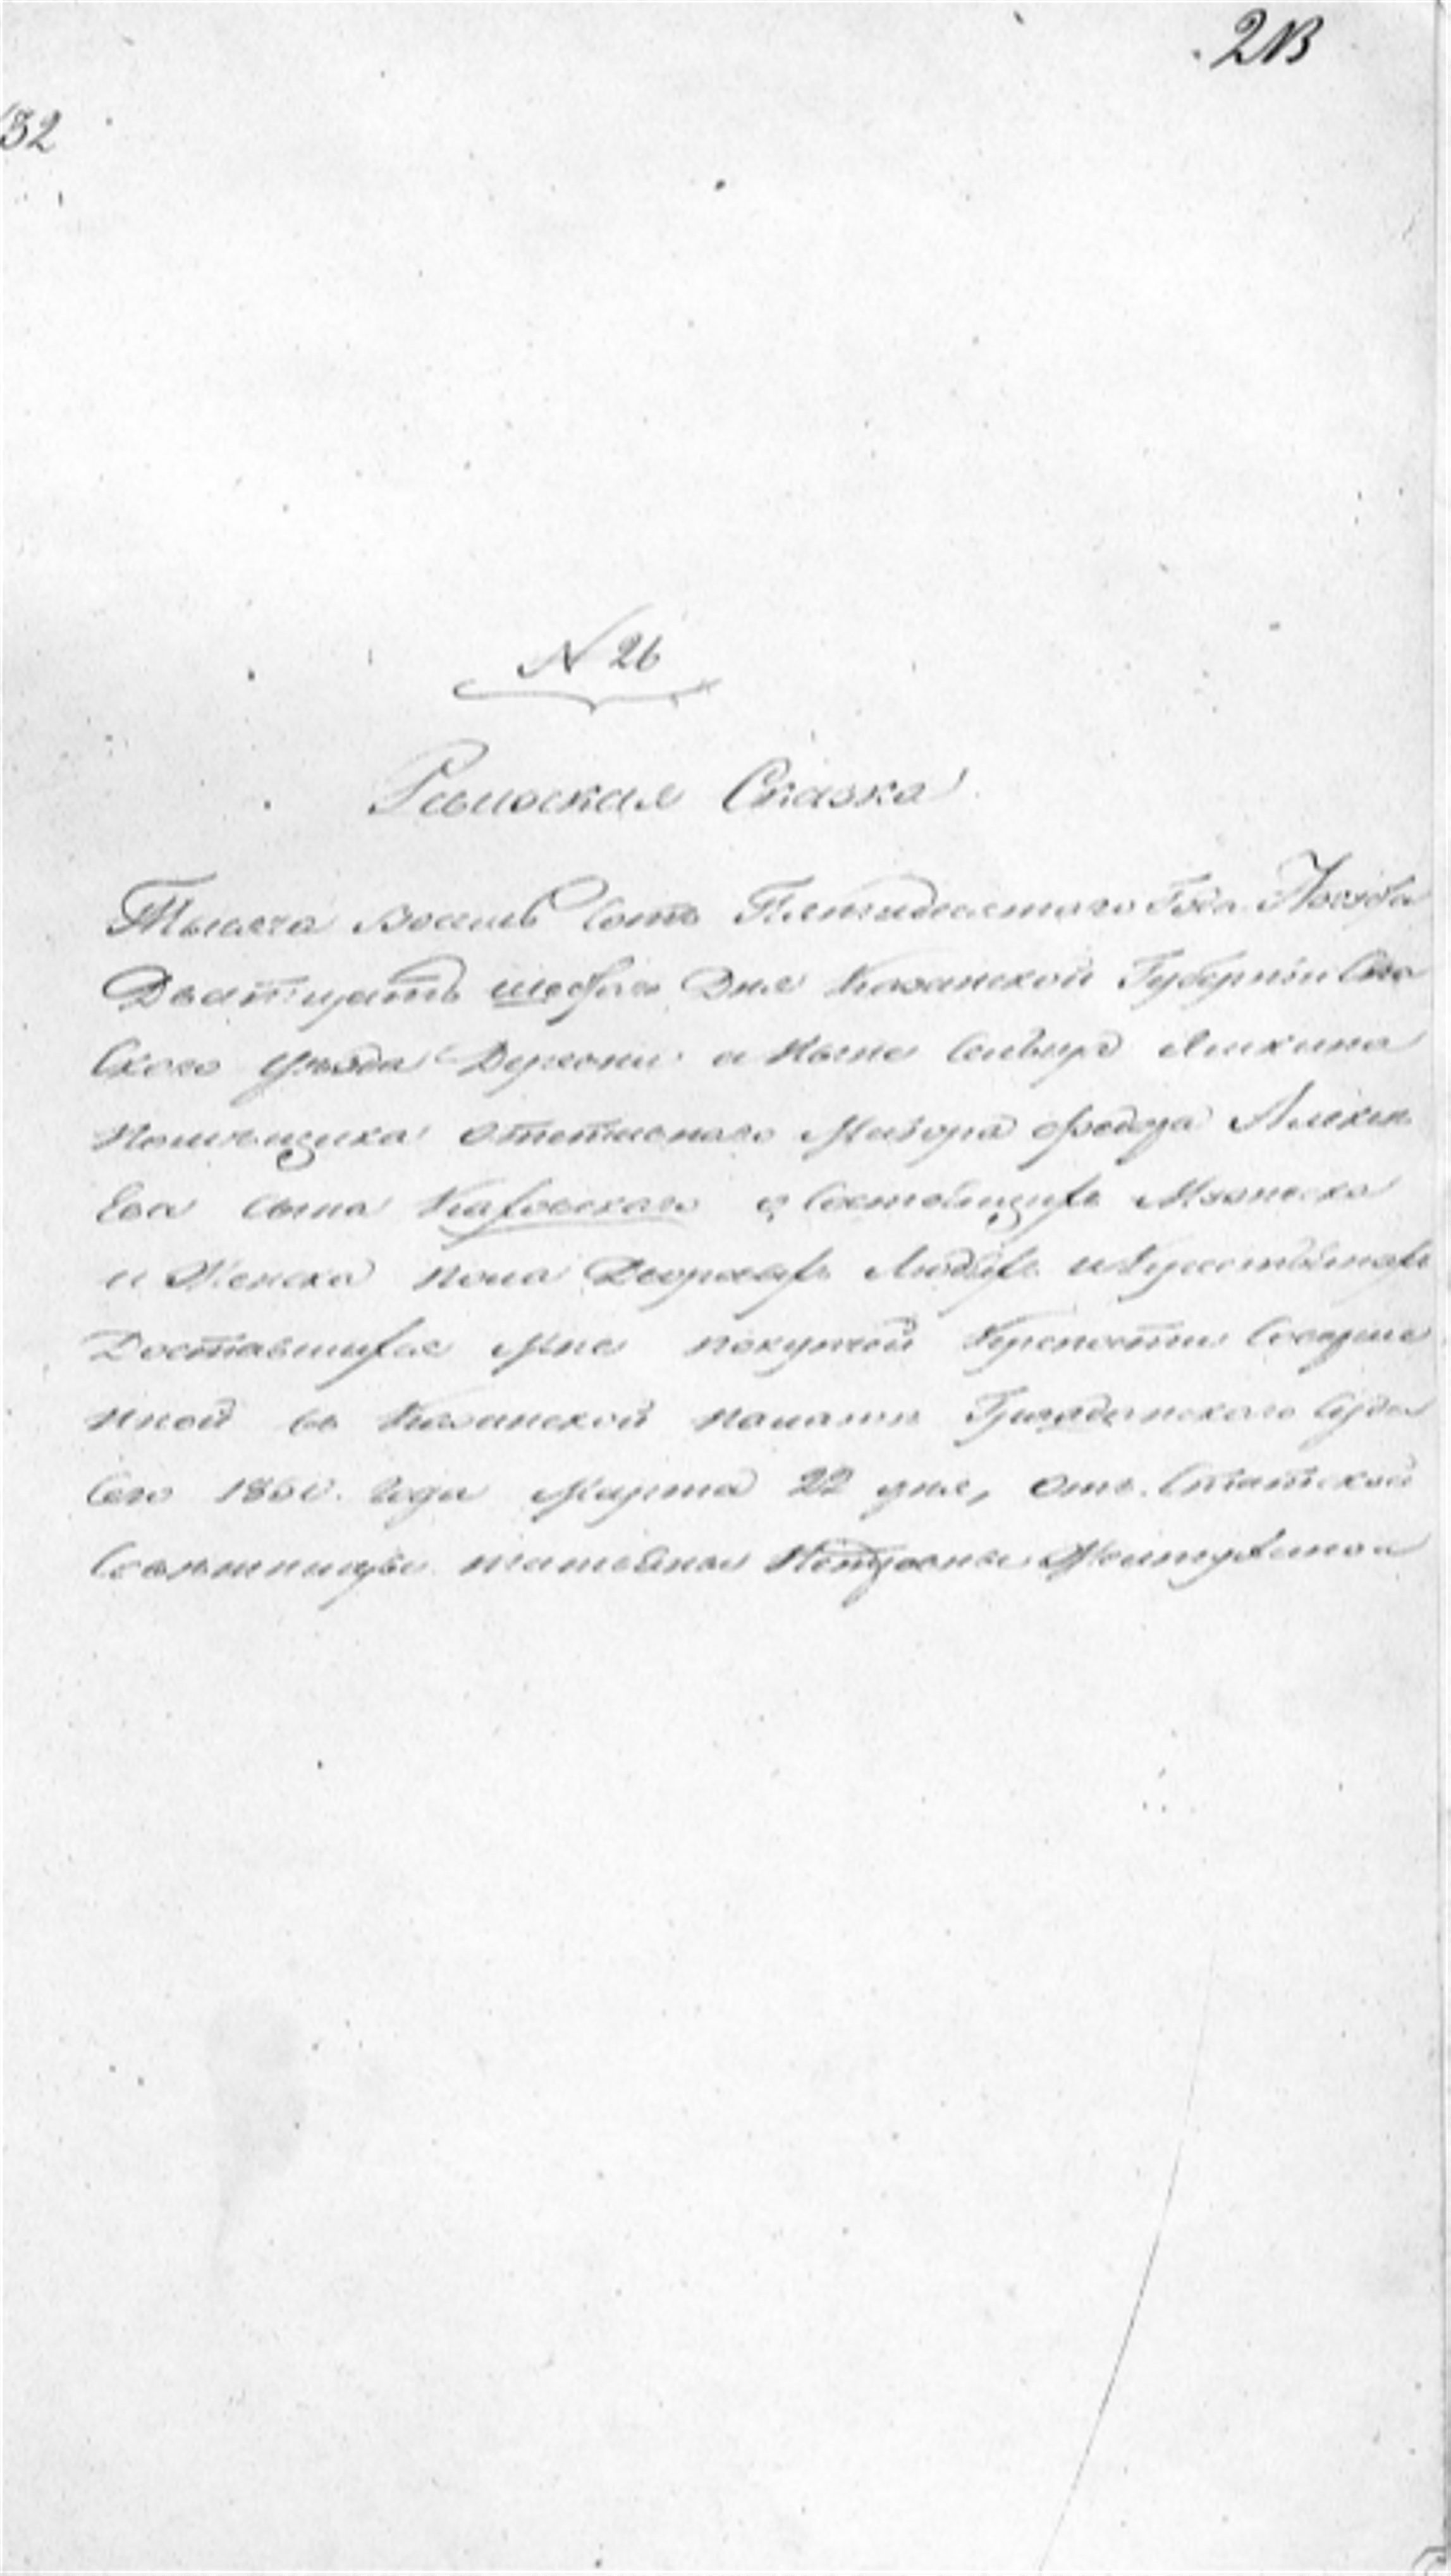 213
132
N 26
Ревизская Сказка
Тысяча Восемь Сотъ Пятидесятого Года Ноября
Дватцать шестого Дня Казанской Губернии Спа
Ского Уезда Деревни а Ныне Сельцо
Помещика Отставного Маиора Федора Алексе
Ева сына о Состоящихъ Мужеска
и Женска пола Дворовыхъ Людяхъ и Крестьянахъ
Доставшихся Мне покупкой Крепости Соверше
нной въ Казанской палате Гражданского Суда
Сего 1850. Года Марта 22 дня, Отъ Статской
Советницы Петровны